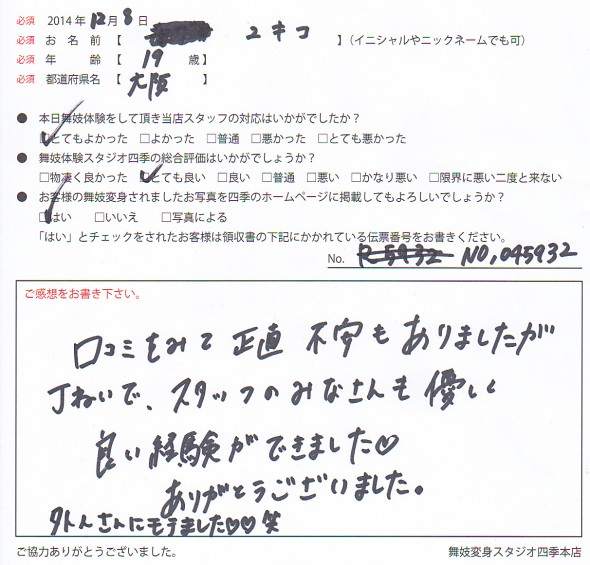 必須 2014年12月8日
必須 お名前【 ユキコ 】(イニシャルやニックネームでも可)
必須 年齢【 19 歳】
必須 都道府県名【 大阪 】
● 本日舞妓体験をして頂き当店スタッフの対応はいかがでしたか？
□とてもよかった □よかった □普通 □悪かった □とても悪かった
● 舞妓体験スタジオ四季の総合評価はいかがでしょうか？
□物凄く良かった □とても良い □良い □普通 □悪い □かなり悪い □限界に悪い二度と来ない
● お客様の舞妓変身されましたお写真を四季のホームページに掲載してもよろしいでしょうか？
□はい □いいえ □写真による
「はい」とチェックをされたお客様は領収書の下記にかかれている伝票番号をお書きください。
No. R5932 NO,045932
ご感想をお書き下さい。
口コミをみて正直不安もありましたが
丁ねいで、スタッフのみなさんも優しく
良い経験ができました♡
ありがとうございました。
外人さんにモテました♡♡笑
ご協力ありがとうございました。 舞妓変身スタジオ四季本店